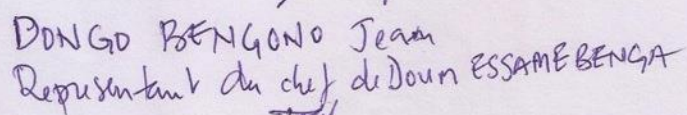 DONGO BENGONO Jean
Representant du chef de Doum ESSAMEBENGA